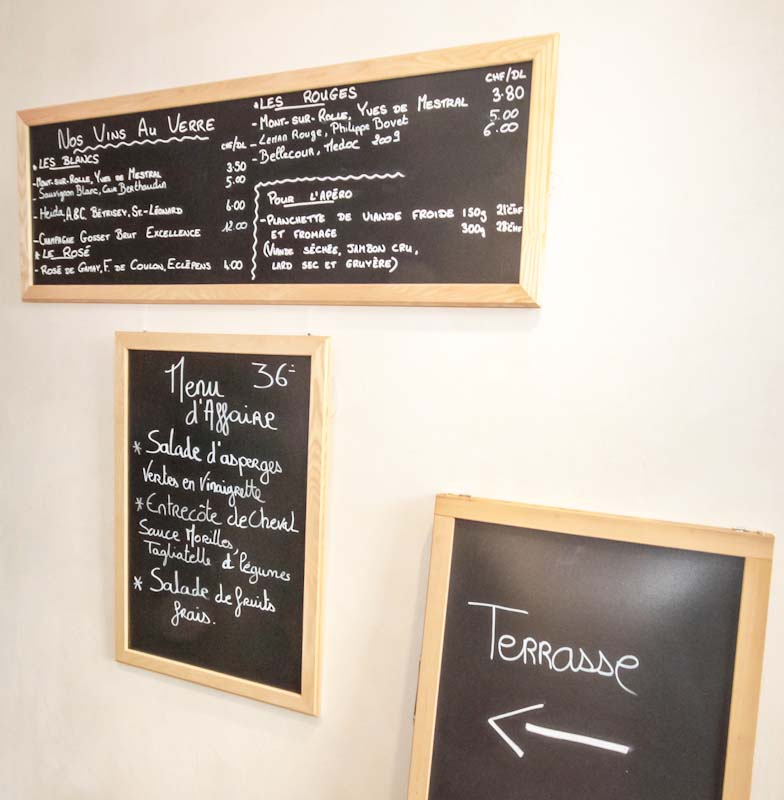 Nos Vins Au Verre
CHF/DL
* Les Blancs
- Mont-sur-Rolle, Yves de Mestral 3.50
- Sauvignon Blanc, Cave Berthaudin 5.00
- Heida, A&C Bétrisey, St-Léonard 6.00
- Champagne Gosset Brut Excellence 12.00
* Le Rosé
- Rosé de Gamay, F. de Coulon, Eclépens 4.00
CHF/DL
* Les Rouges
- Mont-sur-Rolle, Yves de Mestral 3.80
- Leman Rouge, Philippe Bovet 5.00
- Bellecour, Medoc 2009 6.00
Pour l'Apéro
- Planchette de viande froide 150g 21CHF
et fromage 300g 28CHF
(Viande séchée, jambon cru,
lard sec et gruyère)
Menu 36.-
d'Affaire
* Salade d'asperges
Vertes en Vinaigrette
* Entrecôte de Cheval
Sauce Morilles,
Tagliatelle d' légumes
* Salade de fruits
frais.
Terrasse